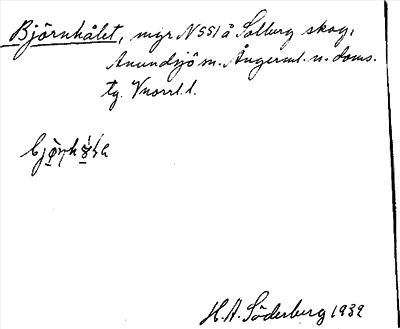 Björnhålet, mgr N 551 å Solberg skog,
Anundsjö sn. Ångerml. n. doms.
tg. Vnorrl. l.
H. A. Söderberg 1932